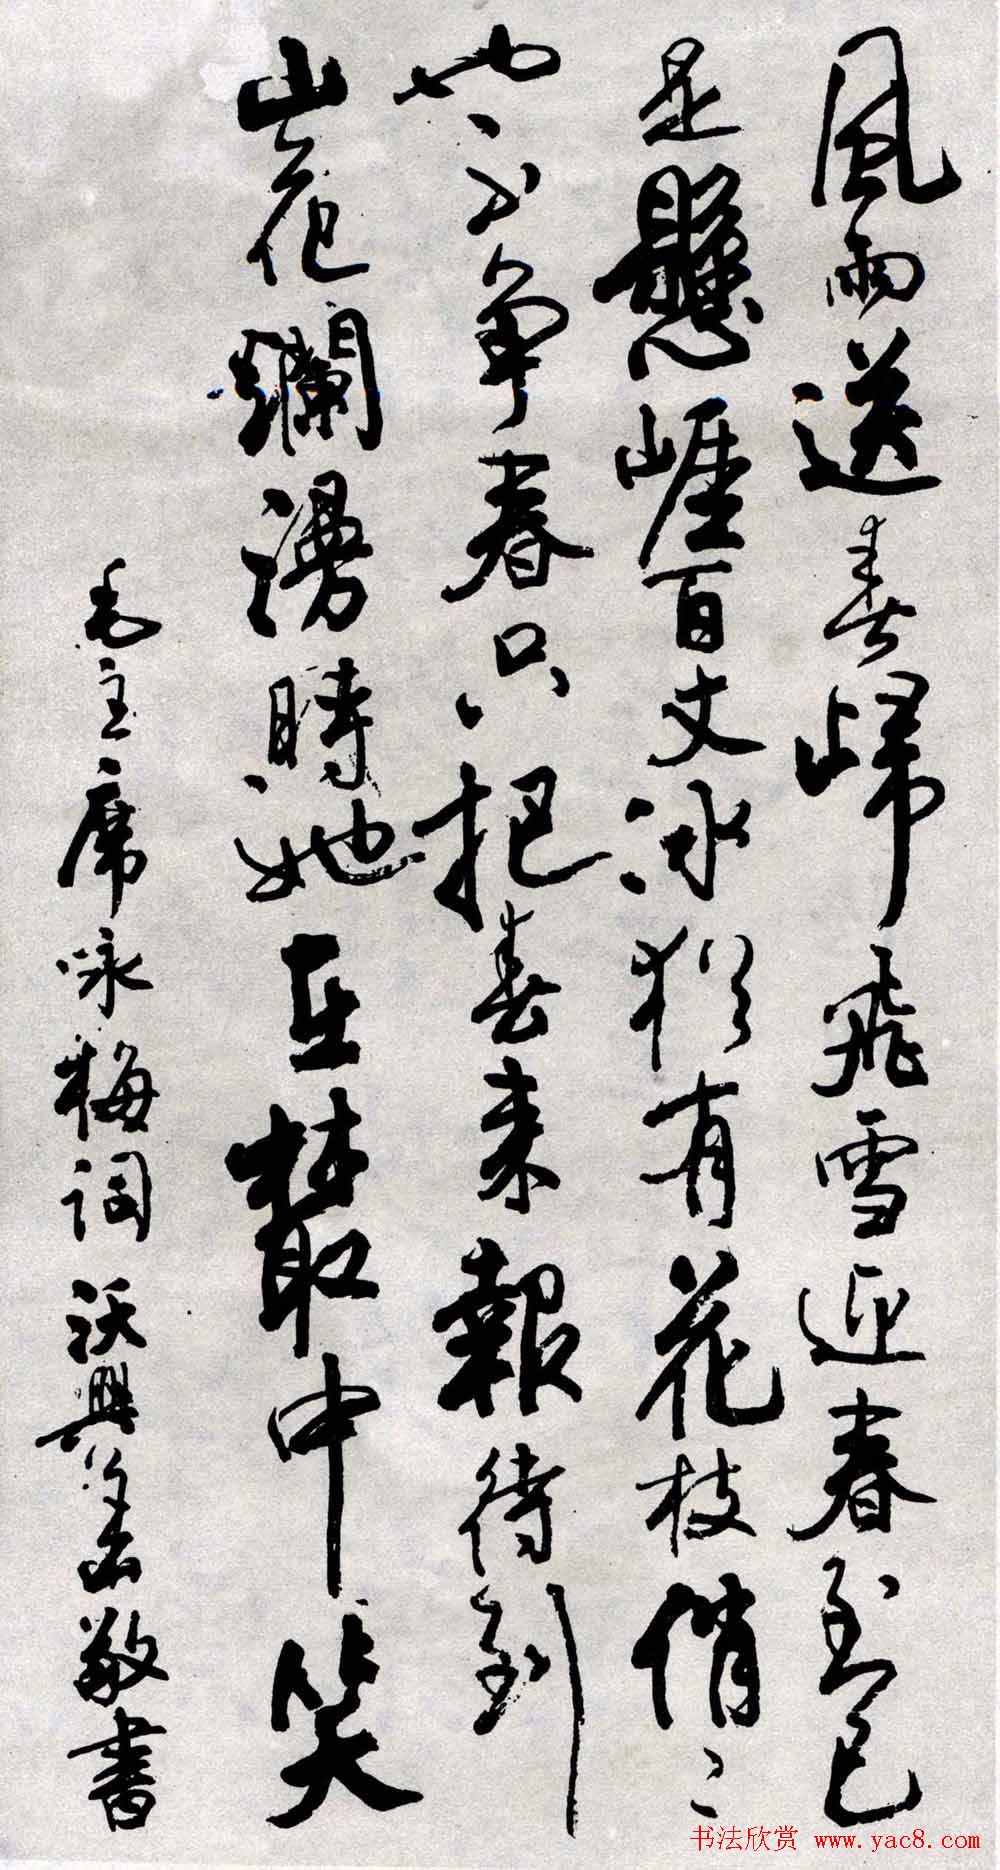 風雨送春歸飛雪迎春到已
是懸崖百丈冰猶有花枝俏〻
也不争春只把春来報待到
山花爛漫時她在叢中笑
毛主席咏梅詞 沃興華敬書
书法欣赏 www.yac8.com